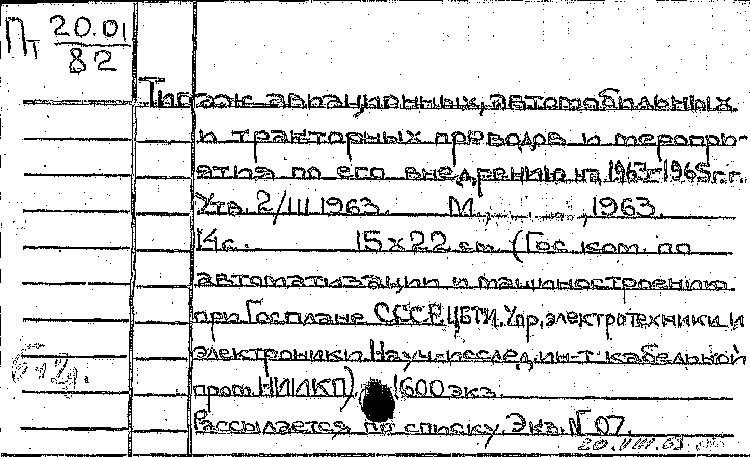 Пт 20.01
82
Типаж авиационных, автомобильных
и тракторных проводов и меропри-
ятия по его внедрению на 1963-1965 г.г.
Утв. 2/III 1963. М., , 1963.
14 с. 15 x 22 см (Гос. ком. по
автоматизации и машиностроению
при Госплане СССР. ЦБТИ. Упр. электротехники и
электроники. Науч.-исслед. ин-т кабельной
пром. НИИКП) 1600 экз.
Рассылается по списку. Экз. № 07.
20.VIII.63